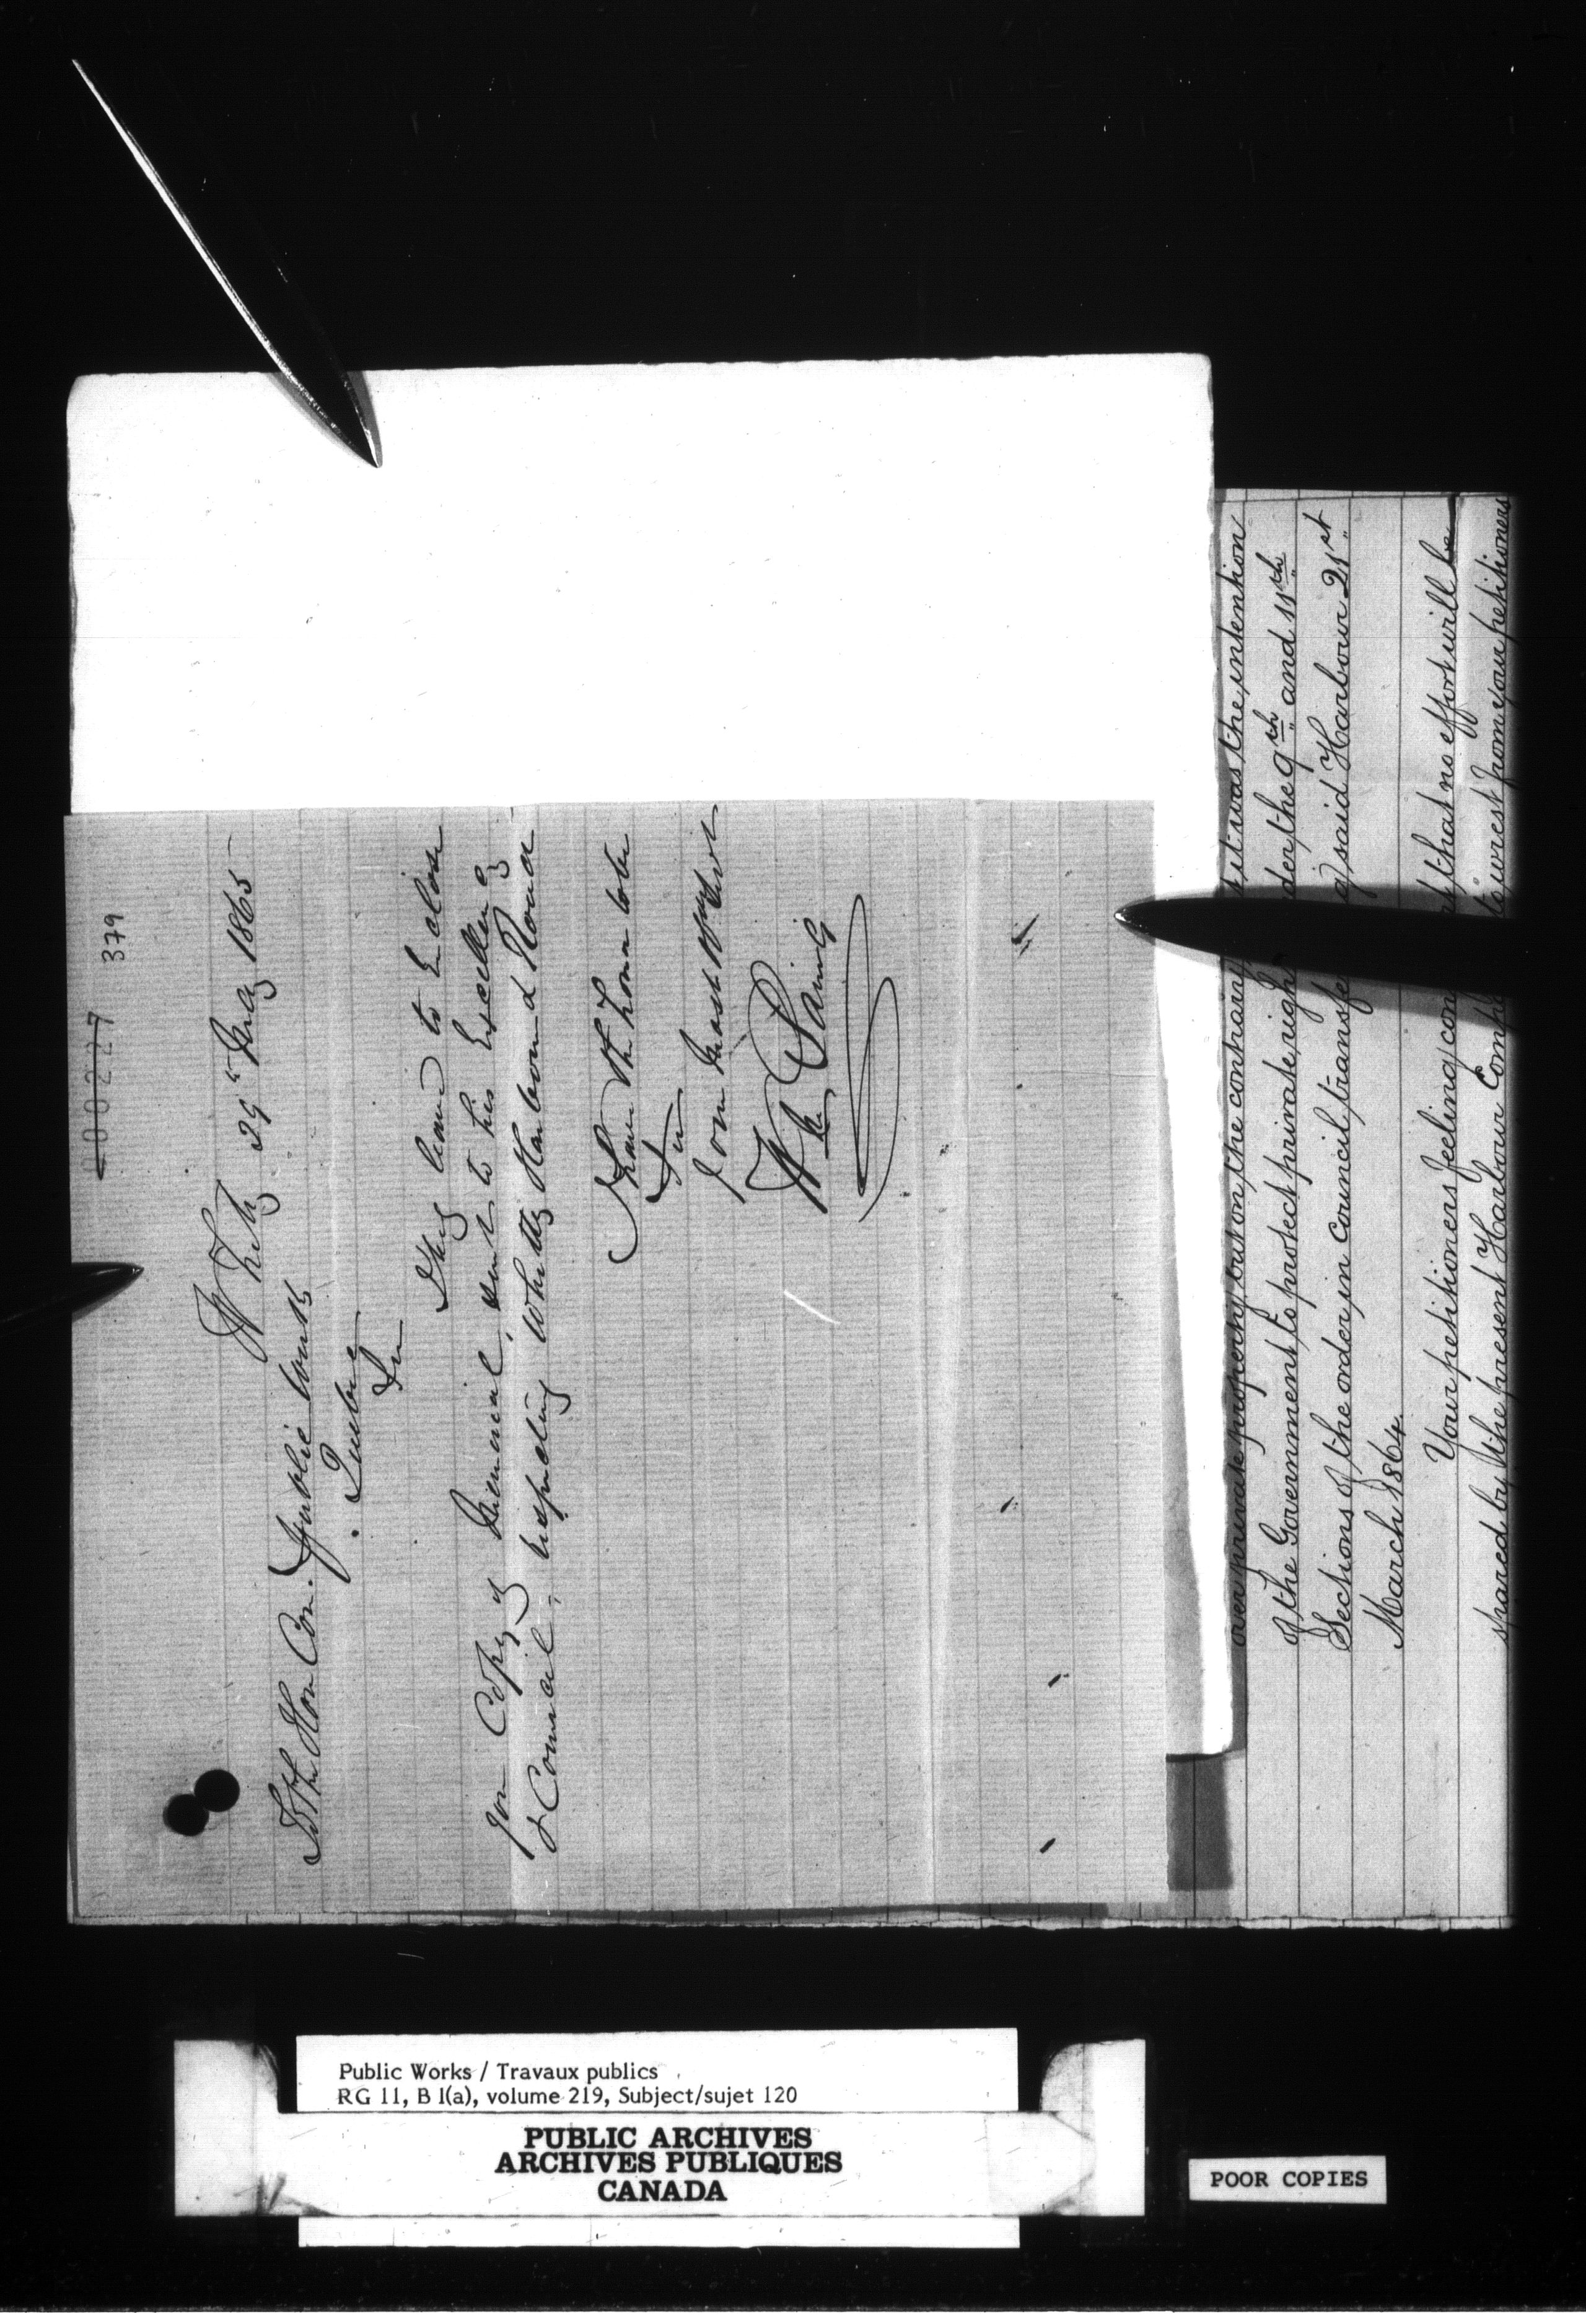 000227
379
Whitby 29th May 1865
To The Hon Com. Public Works
Quebec
Sir
I beg leave to Enclose
you Copy of Memorial, sent to his Excellency
& Council, respecting Whitby Harbour and Road
I have the honor to be
Sir
Your Most Obt Svt
Wm Laing
over private property, but on the contrary it was the intention
of the Government to protect private right under the 9th and 11th
Sections of the order in council transfer said Harbour 21st
March 1864.
Your petitioners feeling that no effort will be
spared by the present Harbour to wrest from your petitioners
Public Works / Travaux publics
RG 11, B 1(a), volume 219, Subject/sujet 120
PUBLIC ARCHIVES
ARCHIVES PUBLIQUES
CANADA
POOR COPIES